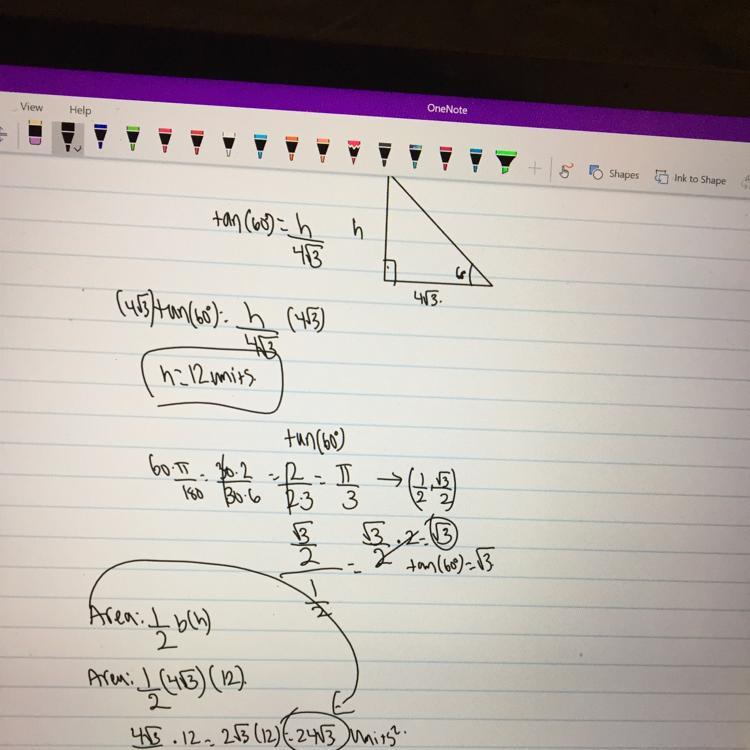 OneNote
View Help
Shapes Ink to Shape
tan(60°) = h/4√3
h
60
4√3.
(4√3)tan(60°) = h/4√3 (4√3)
h=12 units.
tan(60°)
60·π/180 = 30·2/30·6 = 2/2·3 = π/3 → (1/2, √3/2)
√3/2 / 1/2 = √3/2 · 2 = √3
tan(60°) = √3
Area: 1/2 b(h)
Area: 1/2 (4√3)(12).
4√3 · 12 = 2√3(12) = 24√3 units².